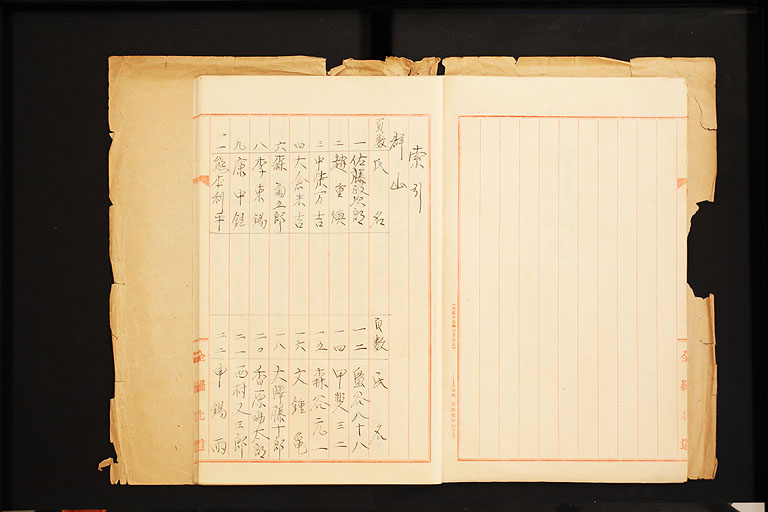 索引
群山
頁数 氏名
一 佐藤政次郎
二 趙重煥
三 中柴万吉
四 大倉米吉
六 森菊五郎
八 李東錫
九 康中鉉
一一 熊本利平
頁数 氏名
一二 蜑谷八十八
一四 甲斐三二
一五 森谷元一
一六 文鍾亀
一八 大澤藤十郎
二〇 香原助太郎
二一 西村又三郎
二二 申錫雨
全羅北道
全羅北道